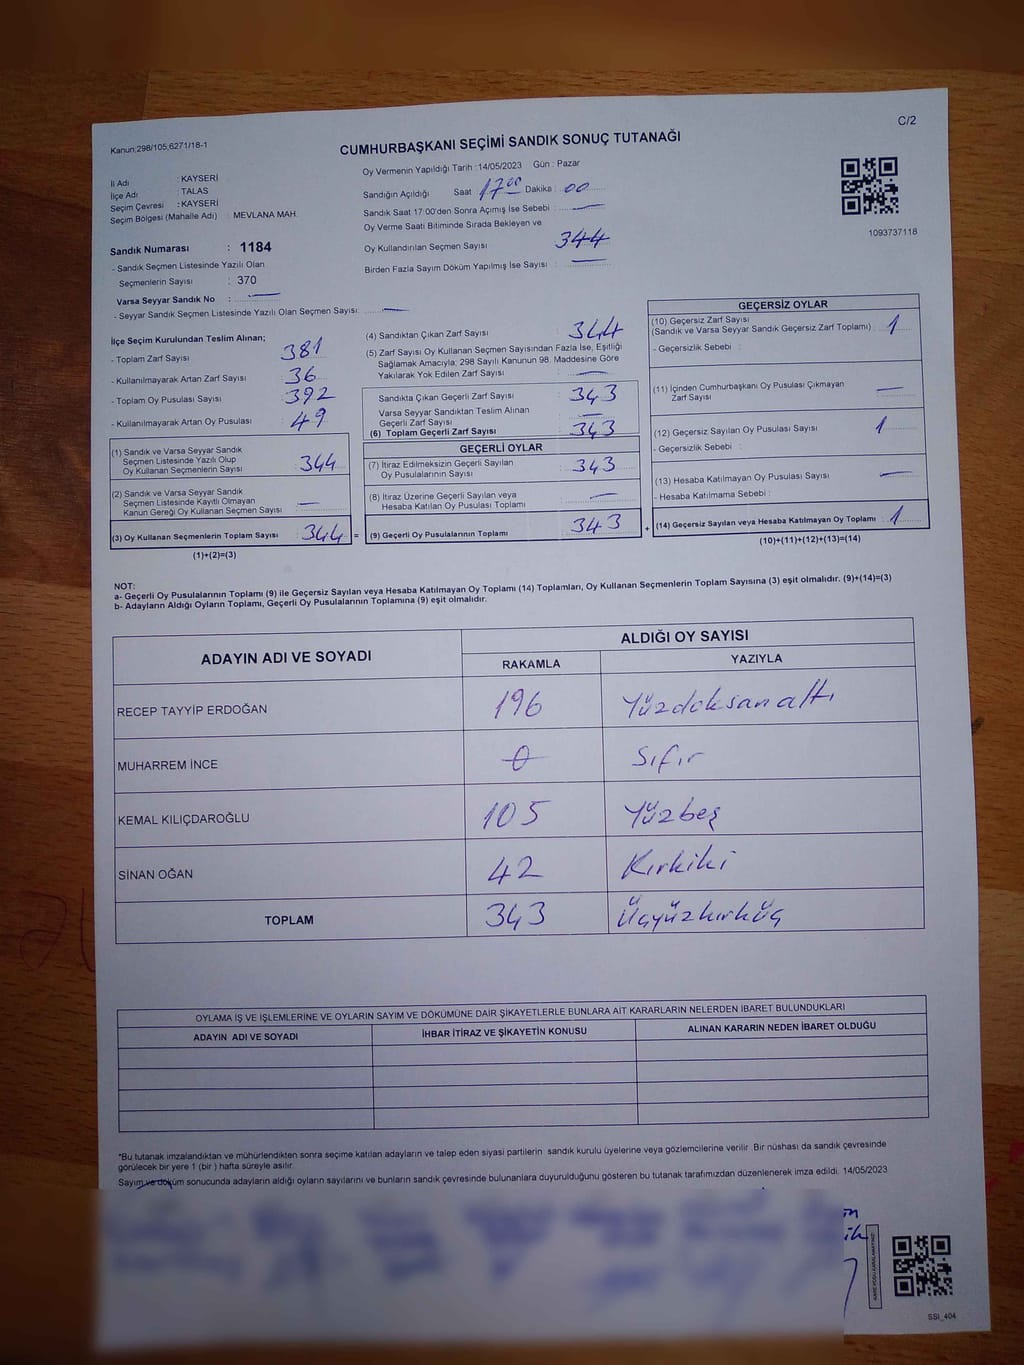 C/2
Kanun:298/105,6271/18-1
CUMHURBAŞKANI SEÇİMİ SANDIK SONUÇ TUTANAĞI
İl Adı : KAYSERİ
İlçe Adı : TALAS
Seçim Çevresi : KAYSERİ
Seçim Bölgesi (Mahalle Adı) : MEVLANA MAH.
Sandık Numarası : 1184
- Sandık Seçmen Listesinde Yazılı Olan
Seçmenlerin Sayısı : 370
Varsa Seyyar Sandık No :
- Seyyar Sandık Seçmen Listesinde Yazılı Olan Seçmen Sayısı:
Oy Vermenin Yapıldığı Tarih :14/05/2023 Gün : Pazar
Sandığın Açıldığı Saat 17 00 Dakika : 00
Sandık Saat 17:00'den Sonra Açımış İse Sebebi :
Oy Verme Saati Bitiminde Sırada Bekleyen ve
Oy Kullandırılan Seçmen Sayısı 344
Birden Fazla Sayım Döküm Yapılmış İse Sayısı :
1093737118
İlçe Seçim Kurulundan Teslim Alınan;
- Toplam Zarf Sayısı 381
- Kullanılmayarak Artan Zarf Sayısı 36
- Toplam Oy Pusulası Sayısı 392
- Kullanılmayarak Artan Oy Pusulası 49
(1) Sandık ve Varsa Seyyar Sandık
Seçmen Listesinde Yazılı Olup
Oy Kullanan Seçmenlerin Sayısı 344
(2) Sandık ve Varsa Seyyar Sandık
Seçmen Listesinde Kayıtlı Olmayan
Kanun Gereği Oy Kullanan Seçmen Sayısı
(3) Oy Kullanan Seçmenlerin Toplam Sayısı 344 =
(1)+(2)=(3)
(4) Sandıktan Çıkan Zarf Sayısı 344
(5) Zarf Sayısı Oy Kullanan Seçmen Sayısından Fazla İse, Eşitliği
Sağlamak Amacıyla; 298 Sayılı Kanunun 98. Maddesine Göre
Yakılarak Yok Edilen Zarf Sayısı
Sandıkta Çıkan Geçerli Zarf Sayısı : 343
Varsa Seyyar Sandıktan Teslim Alınan
Geçerli Zarf Sayısı
(6) Toplam Geçerli Zarf Sayısı : 343
GEÇERLİ OYLAR
(7) İtiraz Edilmeksizin Geçerli Sayılan
Oy Pusulalarının Sayısı : 343
(8) İtiraz Üzerine Geçerli Sayılan veya
Hesaba Katılan Oy Pusulası Toplamı
(9) Geçerli Oy Pusulalarının Toplamı : 343 +
GEÇERSİZ OYLAR
(10) Geçersiz Zarf Sayısı
(Sandık ve Varsa Seyyar Sandık Geçersiz Zarf Toplamı) : 1
- Geçersizlik Sebebi :
(11) İçinden Cumhurbaşkanı Oy Pusulası Çıkmayan
Zarf Sayısı
(12) Geçersiz Sayılan Oy Pusulası Sayısı : 1
- Geçersizlik Sebebi :
(13) Hesaba Katılmayan Oy Pusulası Sayısı :
- Hesaba Katılmama Sebebi :
(14) Geçersiz Sayılan veya Hesaba Katılmayan Oy Toplamı : 1
(10)+(11)+(12)+(13)=(14)
NOT:
a- Geçerli Oy Pusulalarının Toplamı (9) ile Geçersiz Sayılan veya Hesaba Katılmayan Oy Toplamı (14) Toplamları, Oy Kullanan Seçmenlerin Toplam Sayısına (3) eşit olmalıdır. (9)+(14)=(3)
b- Adayların Aldığı Oyların Toplamı, Geçerli Oy Pusulalarının Toplamına (9) eşit olmalıdır.
ADAYIN ADI VE SOYADI
ALDIĞI OY SAYISI
RAKAMLA YAZIYLA
RECEP TAYYİP ERDOĞAN 196 Yüzdoksanaltı
MUHARREM İNCE 0 Sıfır
KEMAL KILIÇDAROĞLU 105 Yüzbeş
SİNAN OĞAN 42 Kırkiki
TOPLAM 343 Üçyüzkırküç
OYLAMA İŞ VE İŞLEMLERİNE VE OYLARIN SAYIM VE DÖKÜMÜNE DAİR ŞİKAYETLERLE BUNLARA AİT KARARLARIN NELERDEN İBARET BULUNDUKLARI
ADAYIN ADI VE SOYADI İHBAR İTİRAZ VE ŞİKAYETİN KONUSU ALINAN KARARIN NEDEN İBARET OLDUĞU
*Bu tutanak imzalandıktan ve mühürlendikten sonra seçime katılan adayların ve talep eden siyasi partilerin sandık kurulu üyelerine veya gözlemcilerine verilir. Bir nüshası da sandık çevresinde
görülecek bir yere 1 (bir) hafta süreyle asılır.
Sayım ve döküm sonucunda adayların aldığı oyların sayılarını ve bunların sandık çevresinde bulunanlara duyurulduğunu gösteren bu tutanak tarafımızdan düzenlenerek imza edildi. 14/05/2023
SSI_404